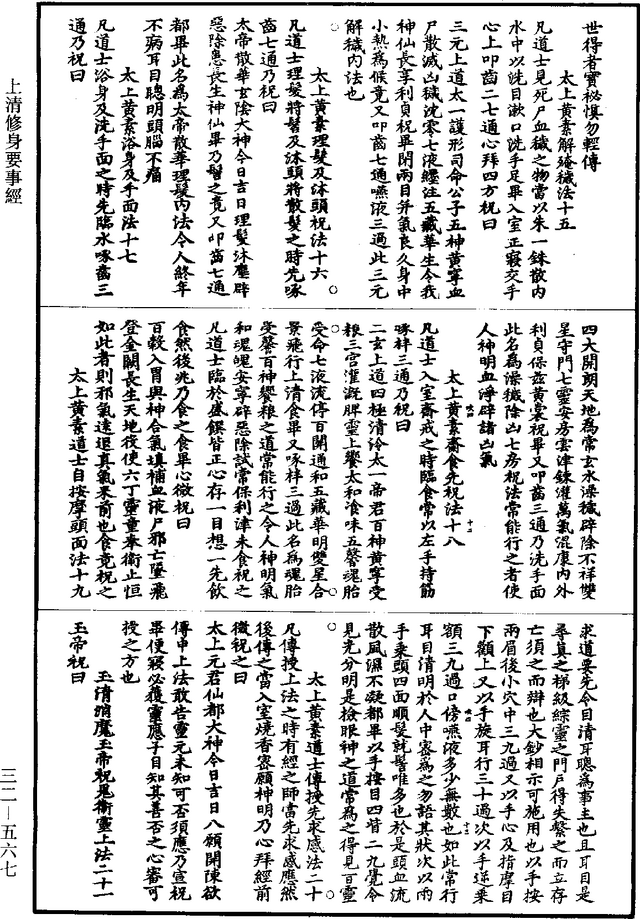 世得者寶祕慎勿輕傳
太上黃素解殗穢法十五
凡道士見死尸血穢之物當以朱一銖散內
水中以洗目漱口洗手足畢入室正寢交手
心上叩齒二七通心拜四方祝曰
三元上道太一護形司命公子五神黃寧血
尸散滅凶穢沈零七液纏注五藏華生令我
神仙長享利貞祝畢閉兩目并氣良久身中
小熱為候竟又叩齒七通嚥液三過此三元
解穢內法也
太上黃素理髮及沐頭祝法十六
凡道士理髮將髻及沐頭將散髮之時先啄
齒七通乃祝曰
太帝散華玄陰大神今日吉日理髮沐塵辟
惡除患長生神仙畢乃髻之竟又叩齒七通
都畢此名為太帝散華理髮內法令人終年
不病耳目聰明頭腦不痛
太上黃素浴身及手面法十七
凡道士浴身及洗手面之時先臨水啄齒三
通乃祝曰
四大開朗天地為常玄水澡穢辟除不祥雙
皇守門七靈安房雲津鍊濯萬氣混康內外
利貞保茲黃裳祝畢又叩齒三通乃洗手面
此名為澡穢除凶七房祝法常能行之者使
人神明血淨辟諸凶氣
太上黃素齋食先祝法十八
凡道士入室齋戒之時臨食常以左手持筯
啄柈三通乃祝曰
二玄上道四極清泠太一帝君百神黃寧受
糧三宮灌溉脾靈上饗太和飡味五馨魂胎
受命七液流停百關通和五藏華明雙皇合
景飛行上清食畢又啄柈三過此名為魂胎
受馨百神饗糧之道常能行之令人神明氣
和魂魄安寧辟惡除試常保利津未食祝之
凡道士臨於盛饌皆正心存一目想一先飲
食然後兆乃食之食畢心微祝曰
百穀入胃與神合氣填補血液尸邪亡墜飛
登金闕長生天地役使六丁靈童奉衛止恒
如此者則邪氣遠退真氣來前也食竟祝之
太上黃素道士自按摩頭面法十九
求道要先令目清耳聰為事主也且耳目是
尋真之梯級綜靈之門戶得失繫之而立存
亡須之而辯也大鈔相示可施用也以手按
兩眉後小穴中三九過又以手心及指摩目
下顴上又以手旋耳行三十過次以手逆乘
額三九過口傍嚥液多少無數也如此常行
耳目清明於人中密為之勿語其狀次以兩
手乘頭四面順髮就髻唯多也於是頭血流
散風濕不凝都畢以手按目四眥二九覺令
見光分明是檢眼神之道常為之得見百靈
太上黃素道士傳授先求感法二十
凡傳授上法之時有經之師當先求感應然
後傳之當入室燒香密願神明乃心拜經前
微祝之曰
太上元君仙都大神今日吉日八願開陳欲
傳甲上法敢告靈元未知可否須應乃宣祝
畢便寢必獲靈應子自知其善否之心審可
授之方也
玉清消魔玉帝祝鬼衛靈上法二十一
玉帝祝曰
上清修身要事經
三二—五六七